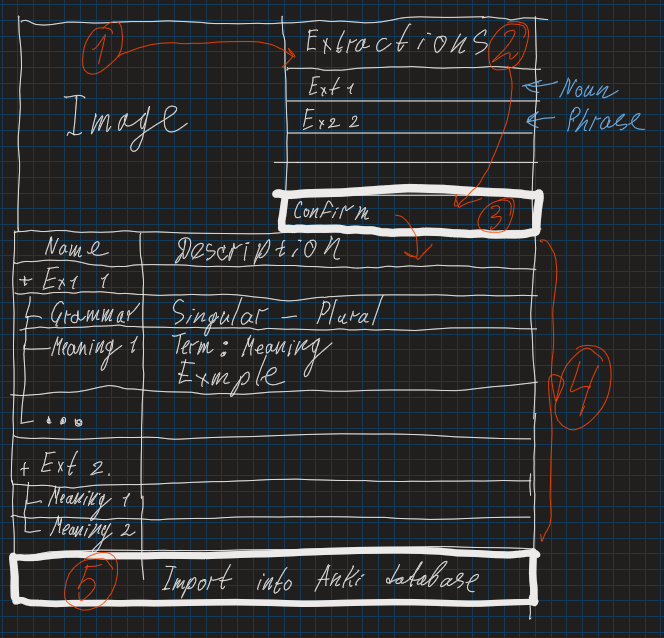 1
Extractions 2
Image
Ext 1
Noun
Ex2 2
Phrase
Confirm
3
Name
Description
+ Ext 1
Grammar
Singular - Plural
Meaning 1
Term: Meaning
Exmple
4
...
+ Ext 2.
Meaning 1
Meaning 2
5
Import into Anki database